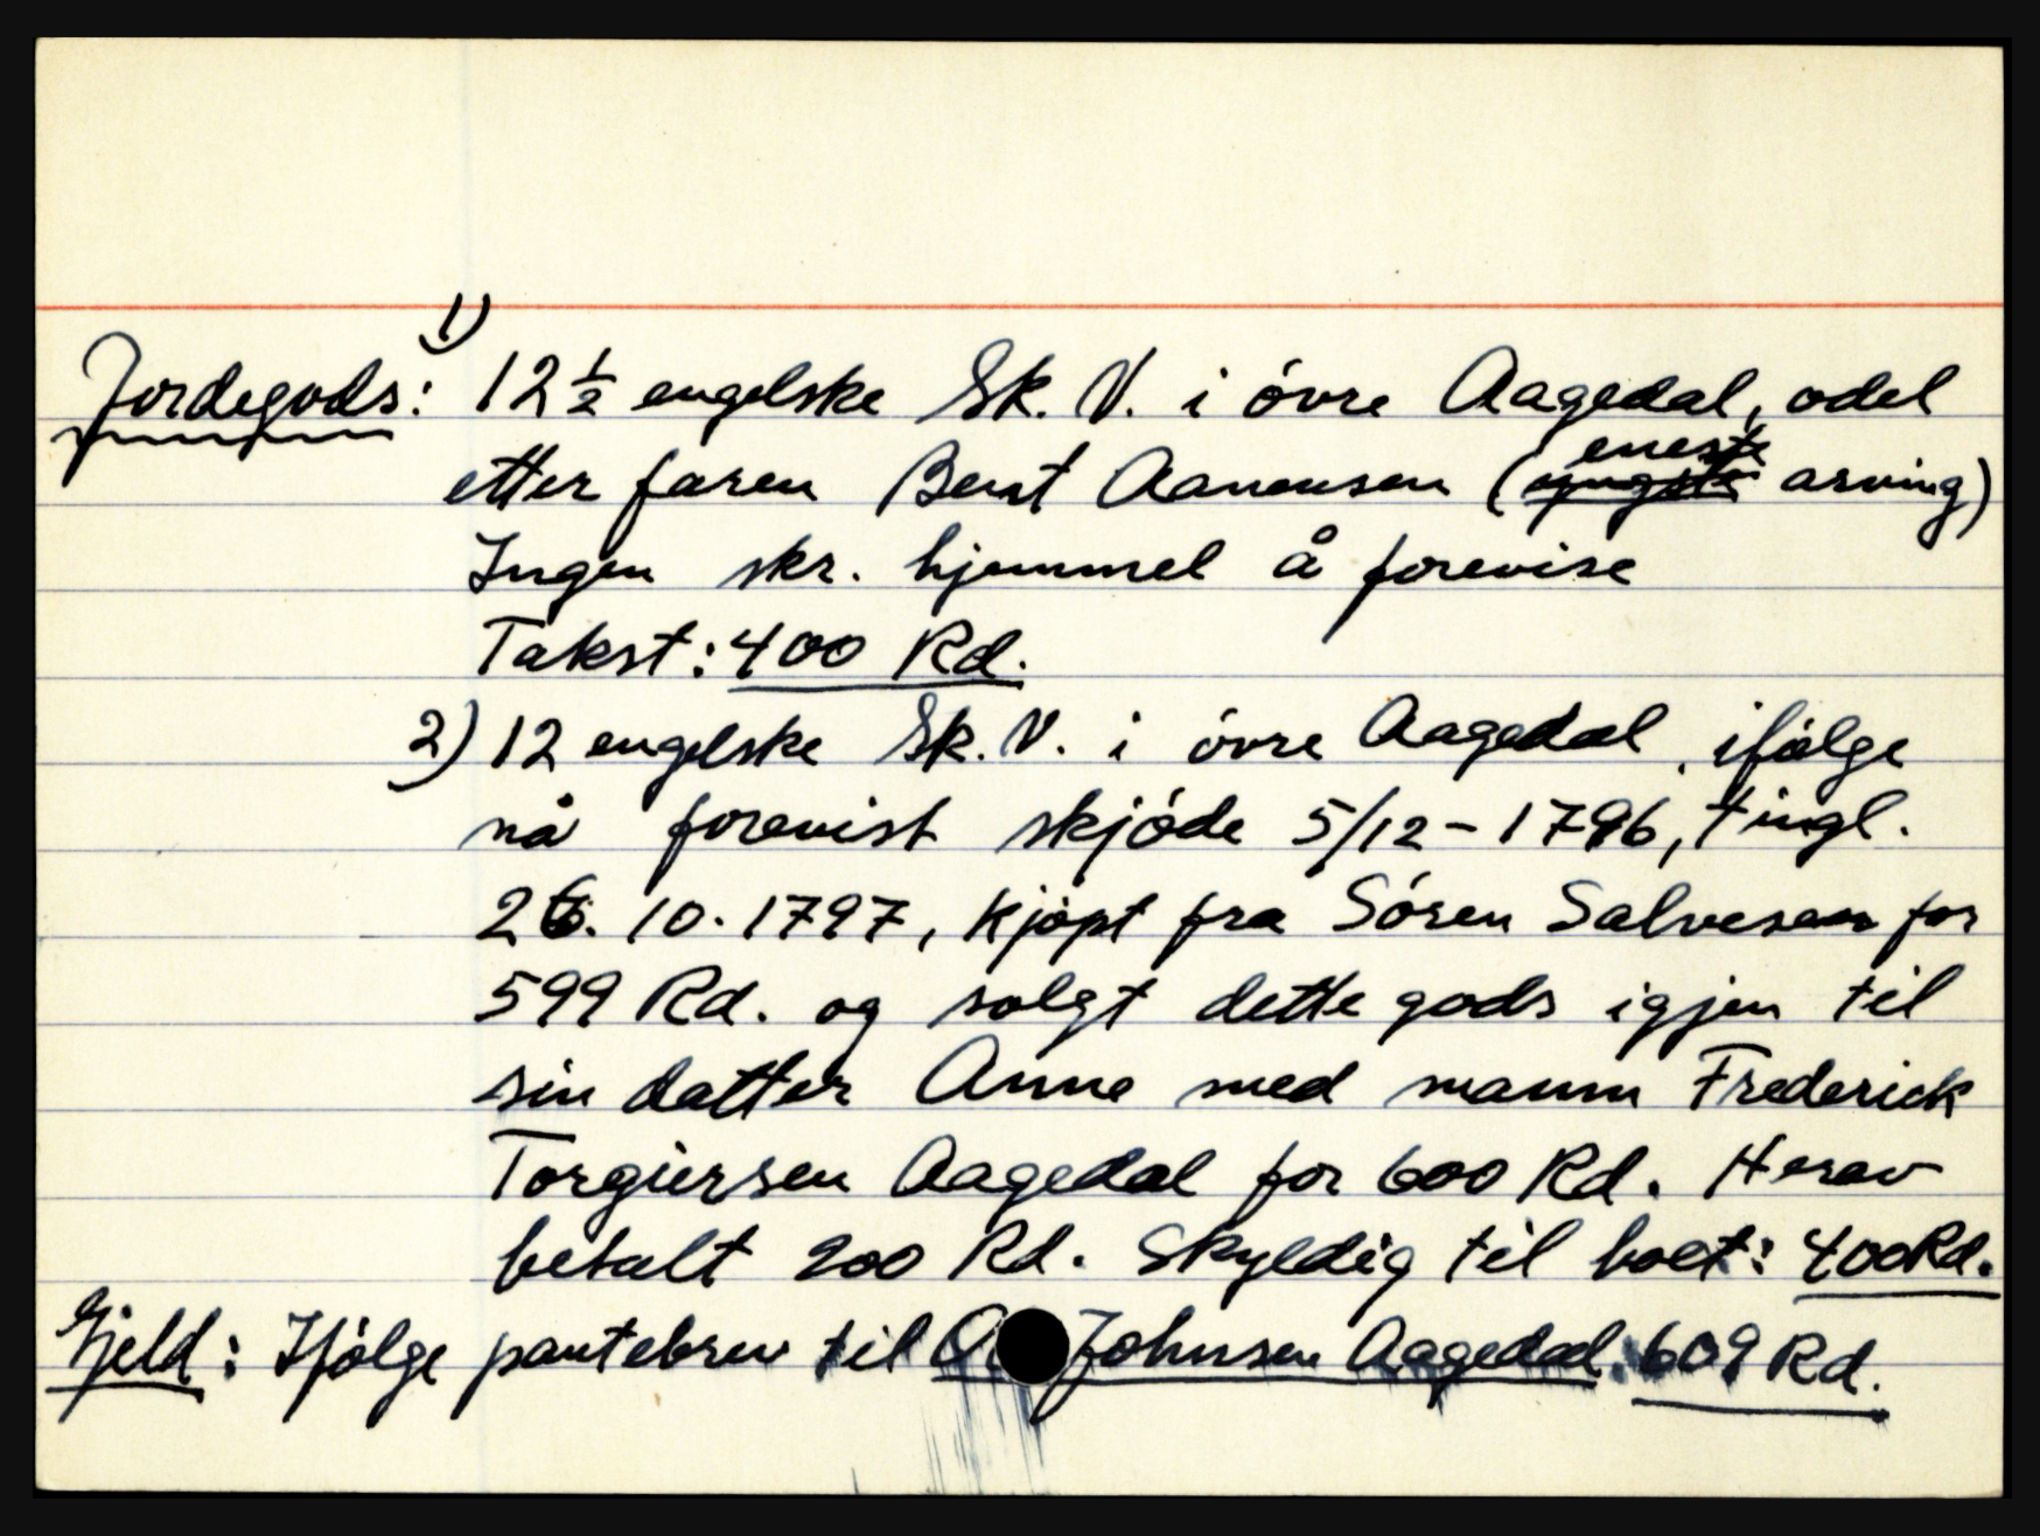 1)
Jordegods: 12 ½ engelske Sk. V. i óvre Aagedal, odel
eneste
etter faren Bent Aanensen (yngste arving)
Ingen skr. hjemmel å forevise
Takst: 400 Rd.
2) 12 engelske Sk. V. i óvre Aagedal, ifólge
nå forevist skjóde 5/12-1796, tingl.
26. 10. 1797, kjópt fra Sóren Salvesen for
599 Rd. og solgt dette gods igjen til
sin datter Anne med mann Frederick
Torgiersen Aagedal for 600 Rd. Herav
betalt 200 Rd. Skyldig til boet: 400 Rd.
Gjeld: Ifólge pantebrev til Johnsen Aagedal. 609 Rd.